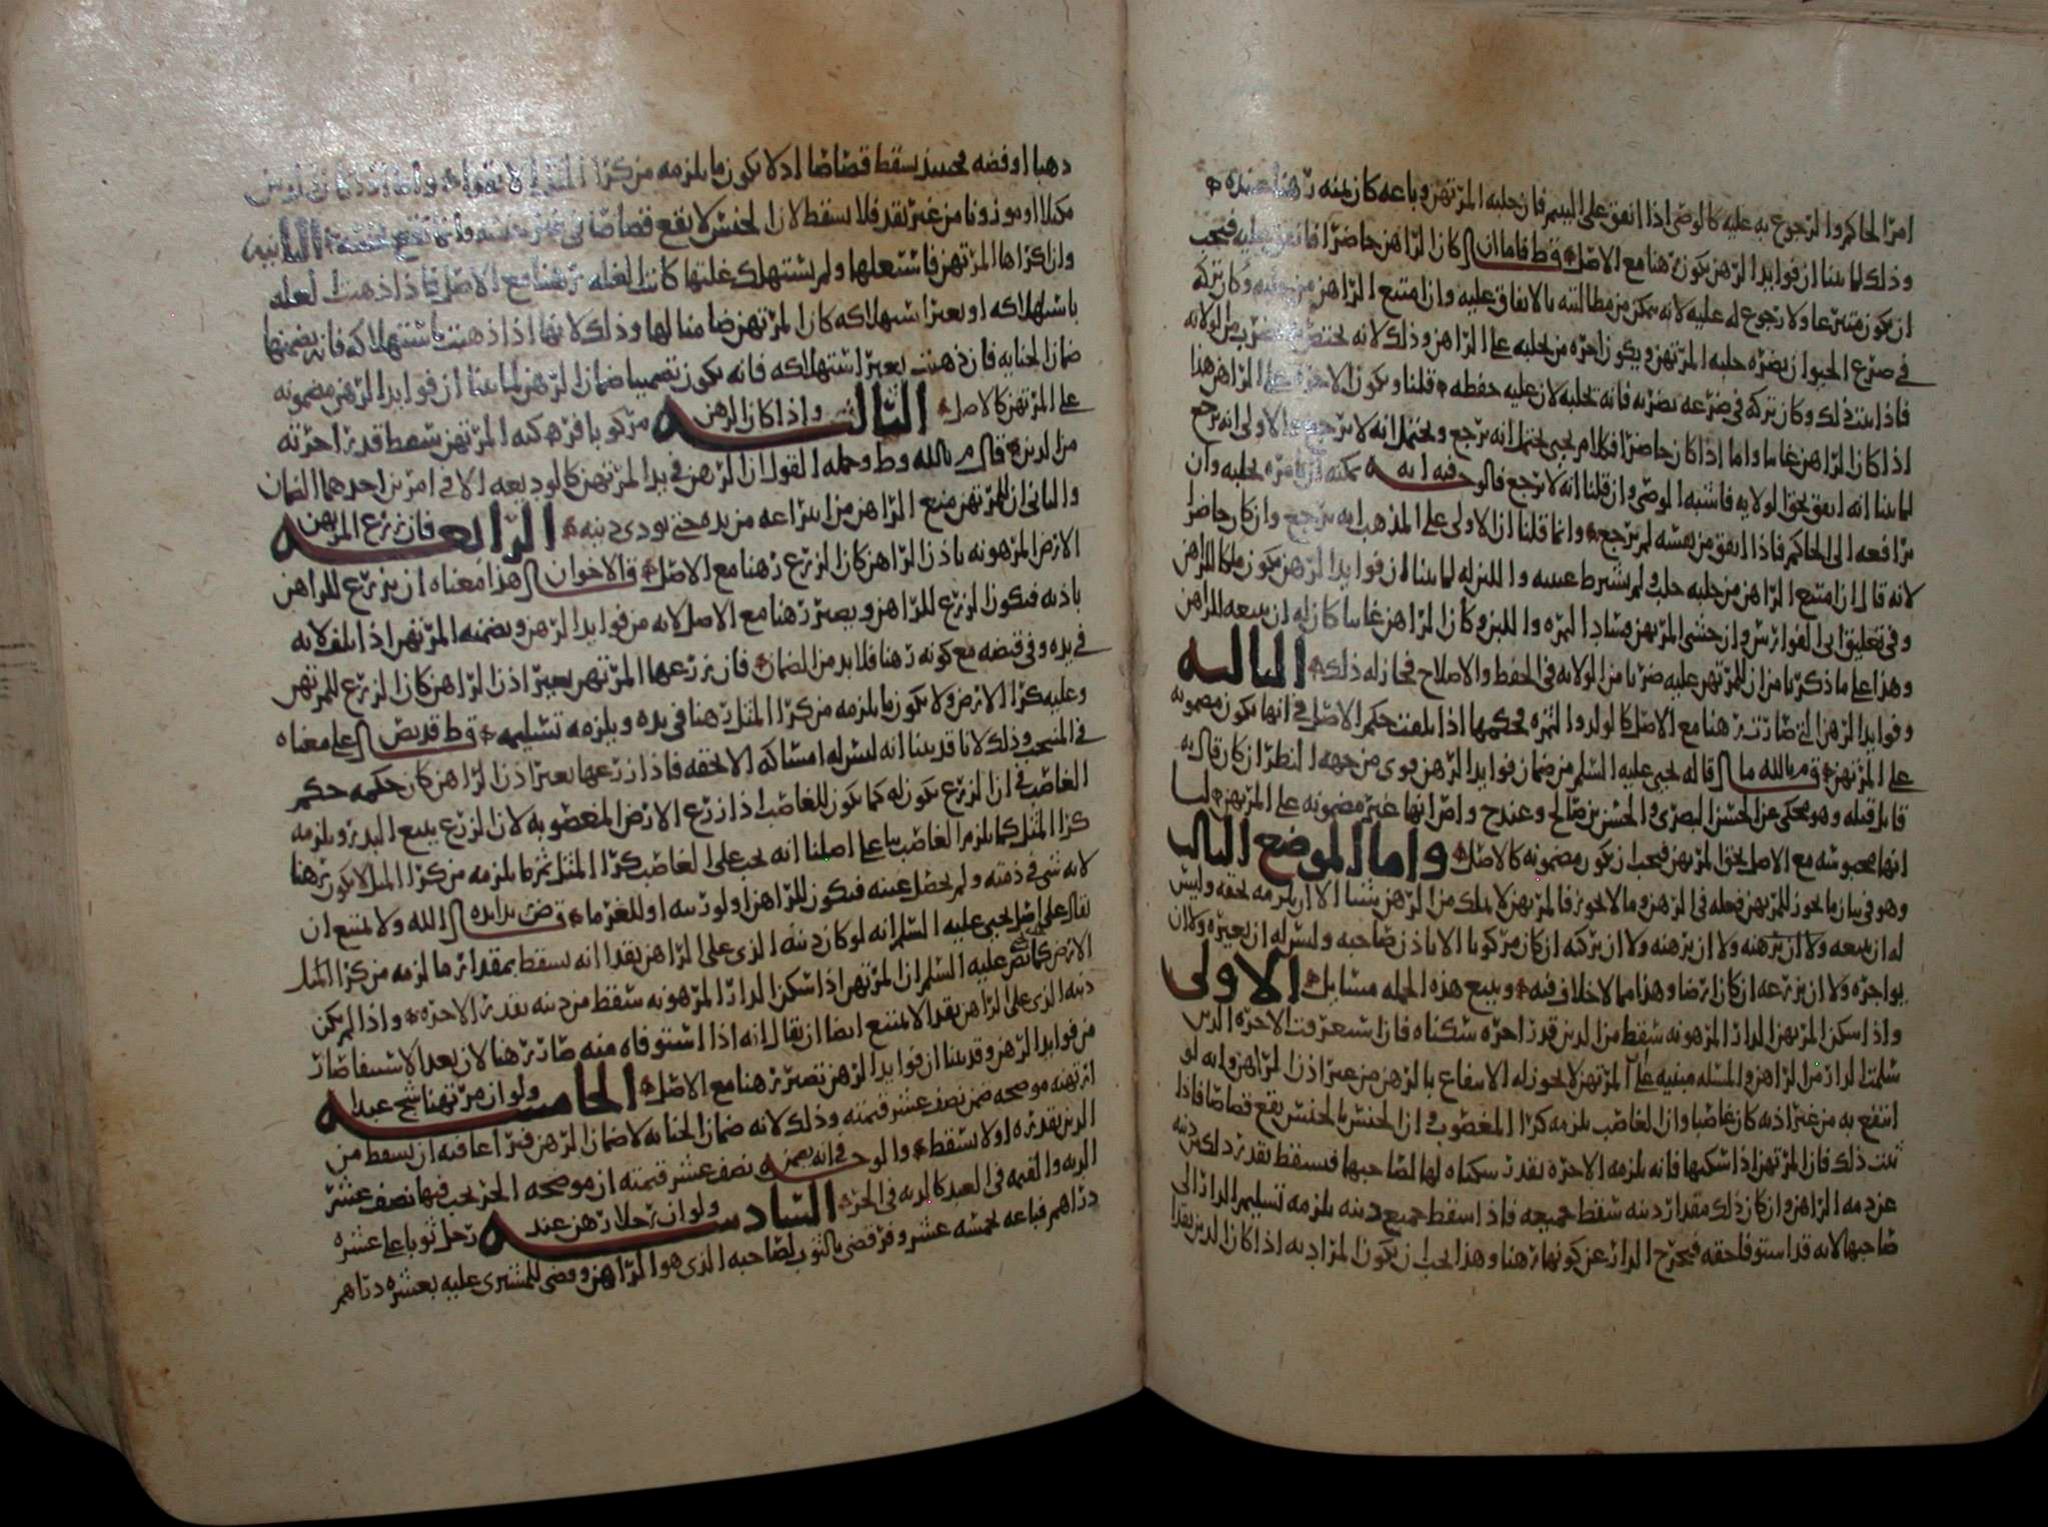 امر الحاكم والرجوع به عليه كالوصي اذا انفق على اليتيم فان حلبه المرتهن وباعه كان ثمنه رهنا عنده
وذلك لما بينا ان فوايد الرهن يكون رهنا مع الاصل قط فاما ان كان الراهن حاضرا فانفق عليه فيجب
ان يكون متبرعا ولا رجوع له عليه لانه يتمكن من مطالبته بالانفاق عليه وان امتنع الراهن من وكان تركه
في ضرع الحيوان يضره حلبه المرتهن ويكون اجره من يحلبه على الراهن وذلك لانه يختص بضرب من الولايه
فاذا ثبت ذلك وكان تركه في ضرعه يضر به فانه يحلبه لان عليه حفظه قلنا ويكون الاجره على الراهن هذا
اذا كان الراهن غايبا واما اذا كان حاضرا فكلام يحيى يحتمل انه يرجع ويحتمل انه لا يرجع والاولى انه يرجع
لما بينا انه انفق بحق الولايه فاشبه الوصي وان قلنا انه لا يرجع فالوجه فيه انه يمكنه ان يامره بحلبه وان
يرافعه الى الحاكم فاذا انفق من نفسه لم يرجع وانما قلنا ان الاولى على المذهب انه يرجع وان كان حاضرا
لانه قال ان امتنع الراهن من حلبه حلب ولم يشترط غيبته واللبن له لما بينا ان فوايد الرهن يكون ملكا للراهن
وفي تعليق ابي الفوارس وان خشي المرتهن فساد الثمره واللبن وكان الراهن غايبا كان له ان يبيعه للراهن
وهذا على ما ذكرنا من ان للمرتهن عليه ضربا من الولايه في الحفظ والاصلاح فجاز له ذلك الثالثه
وفوايد الرهن التي صارت رهنا مع الاصل كالولد والثمره فحكمها اذا تلفت حكم الاصل في انها يكون مضمونه
على المرتهن قال م بالله ما قاله يحيى عليه السلم من ضمان فوايد الرهن قوى من جهه النظر ان كان قال به
قايل قبله وهو محكي عن الحسن البصري والحسن بن صالح وعند ح وا مر انها غير مضمونه على المرتهن لنا
انها محبوسه مع الاصل بحق المرتهن فيجب ان يكون مضمونه كالاصل واما الموضع الثالث
وهو في بيان ما يجوز للمرتهن فعله في الرهن وما لا يجوز فالمرتهن لا يملك من الرهن شيئا الا ان يلزمه لحقه وليس
له ان يبيعه ولا ان يرهنه ولا ان يركبه ان كان مركوبا الا باذن صاحبه وليس له ان يعيره ولا ان
يواجره ولا ان يزرعه ان كان ارضا وهذا مما لا خلاف فيه ويتبع هذه الجمله مسايل الاولى
واذا سكن المرتهن الدار المرهونه سقط من الدين قدر اجره سكناه فان استغرقت الاجره الدين
سلمت الدار من الراهن والمسله مبنيه على ان المرتهن لا يجوز له الانتفاع بالرهن من غير اذن الراهن وانه لو
انتفع به من غير اذنه كان غاصبا وان الغاصب يلزمه كرا المغصوب وان الجنس بالجنس يقع قصاصا فاذا
ثبت ذلك فان المرتهن اذا سكنها فانه يلزمه الاجره بقدر سكناه لها لصاحبها فيسقط بقدر ذلك من دينه
عن ذمه الراهن وان كان ذلك مقدار دينه سقط جميعه فاذا سقط جميع دينه يلزمه تسليم الدار الى
صاحبها لانه قد استوفا حقه فيخرج الدار عن كونها رهنا وهذا يجب ان يكون المراد به اذا كان الدين نقدا
ذهبا او فضه فحينئذ يسقط قصاصا اذ لا يكون ما يلزمه من كرا المثل الا نقدا واما اذا كان الدين
مكيلا او موزونا من غير نقد فلا يسقط لان الجنس لا يقع قصاصا في غير جنسه وانما يقع لجنسه الثانيه
وان اكراها المرتهن فاستغلها ولم يستهلك غلتها كانت الغله رهنا مع الاصل فاذا ذهبت الغله
باستهلاكه او بغير استهلاكه كان المرتهن ضامنا لها وذلك لانها اذا ذهبت باستهلاكه فانه يضمنها
ضمان الجنايه فان ذهبت بغير استهلاكه فانه يكون تضمينها ضمان الرهن لما بينا ان فوايد الرهن مضمونه
على المرتهن كالاصل الثالثه واذا كان الرهن مركوبا فركبه المرتهن سقط قدر اجرته
من الدين قال م بالله وط وجمله القول ان الرهن في يد المرتهن كالوديعه الا في امرين احدهما الضمان
والثاني ان للمرتهن منع الراهن من انتزاعه من يده حتى يودي دينه الرابعه فان زرع المرتهن
الارض المرهونه باذن الراهن كان الزرع رهنا مع الاصل قال الاخوان هذا معناه ان يزرع للراهن
باذنه فيكون الزرع للراهن ويصير رهنا مع الاصل لانه من فوايد الرهن ويضمنه المرتهن اذا تلف لانه
في يده وفي قبضه مع كونه رهنا فلا بد من الضمان فان زرعها المرتهن بغير اذن الراهن كان الزرع للمرتهن
وعليه كرا الارض ولا يكون ما يلزمه من كرا المثل رهنا في يده ويلزمه تسليمه قط قد نص على معناه
في المنتخب وذلك لانا قد بينا انه ليس له امساكه الا لحقه فاذا زرعها بغير اذن الراهن كان حكمه حكم
الغاصب في ان الزرع يكون له كما يكون للغاصب اذا زرع الارض المغصوبه لان الزرع يتبع البذر ويلزمه
كرا المثل كما يلزم الغاصب بنا على اصلنا انه يجب على الغاصب كرا المثل ثم ما يلزمه من كرا المثل لا يكون رهنا
لانه شي في ذمته ولم يحصل عينه فيكون للراهن او لورثته او للغرما قال ض زيد ايده الله ولا يمتنع ان
يقال على اصل يحيى عليه السلم انه لو كان دينه الذي على الراهن نقدا انه يسقط بمقدار ما لزمه من كرا المثل
الارض كما نص عليه السلم ان المرتهن اذا سكن الدار المرهونه سقط من دينه بقدر الاجره واذا لم يكن
دينه الذي على الراهن نقدا لا يمتنع ايضا ان يقال انه اذا استوفاه منه صار رهنا لان بعد الاستيفا صار
من فوايد الرهن وقد بينا ان فوايد الرهن تصير رهنا مع الاصل الخامسه ولو ان مرتهنا شج عبدا
ارتهنه موضحه ضمن نصف عشر قيمته وذلك لانه ضمان الجنايه لا ضمان الرهن فيراعا فيه ان يسقط من
الدين بقدره او لا يسقط والوجه في انه يضمن نصف عشر قيمته ان موضحه الحر يجب فيها نصف عشر
الديه والقيمه في العبد كالديه في الحر السادسه ولو ان رجلا رهن عند رجل ثوبا على عشره
دراهم فباعه بخمسه عشر وفر قضي بالثوب لصاحبه الذي هو الراهن وقضي للمشتري عليه بعشره دراهم